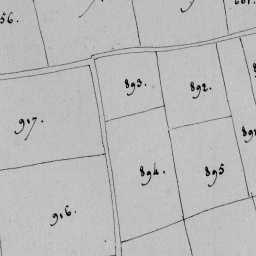 56.
893.
892.
917.
894.
895
916.